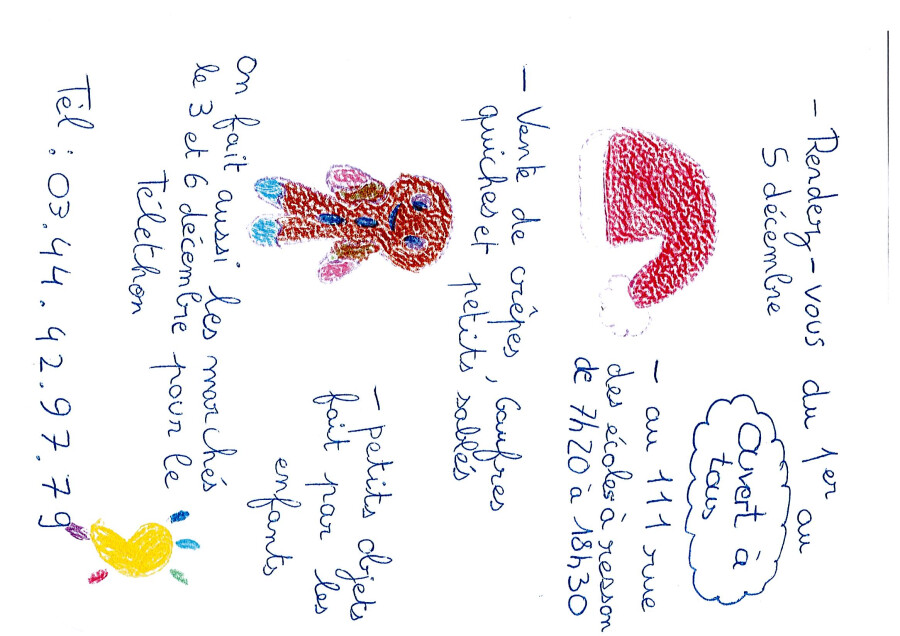 - Rendez-vous du 1er au
5 décembre
Ouvert à
tous
- au 111 rue
des écoles à resson
de 7h20 à 18h30
- Vente de crêpes, Gaufres
quiches et petits sablés
- petits objets
fait par les
enfants
On fait aussi les marchés
le 3 et 6 décembre pour le
Téléthon
Tél : 03.44.42.97.79